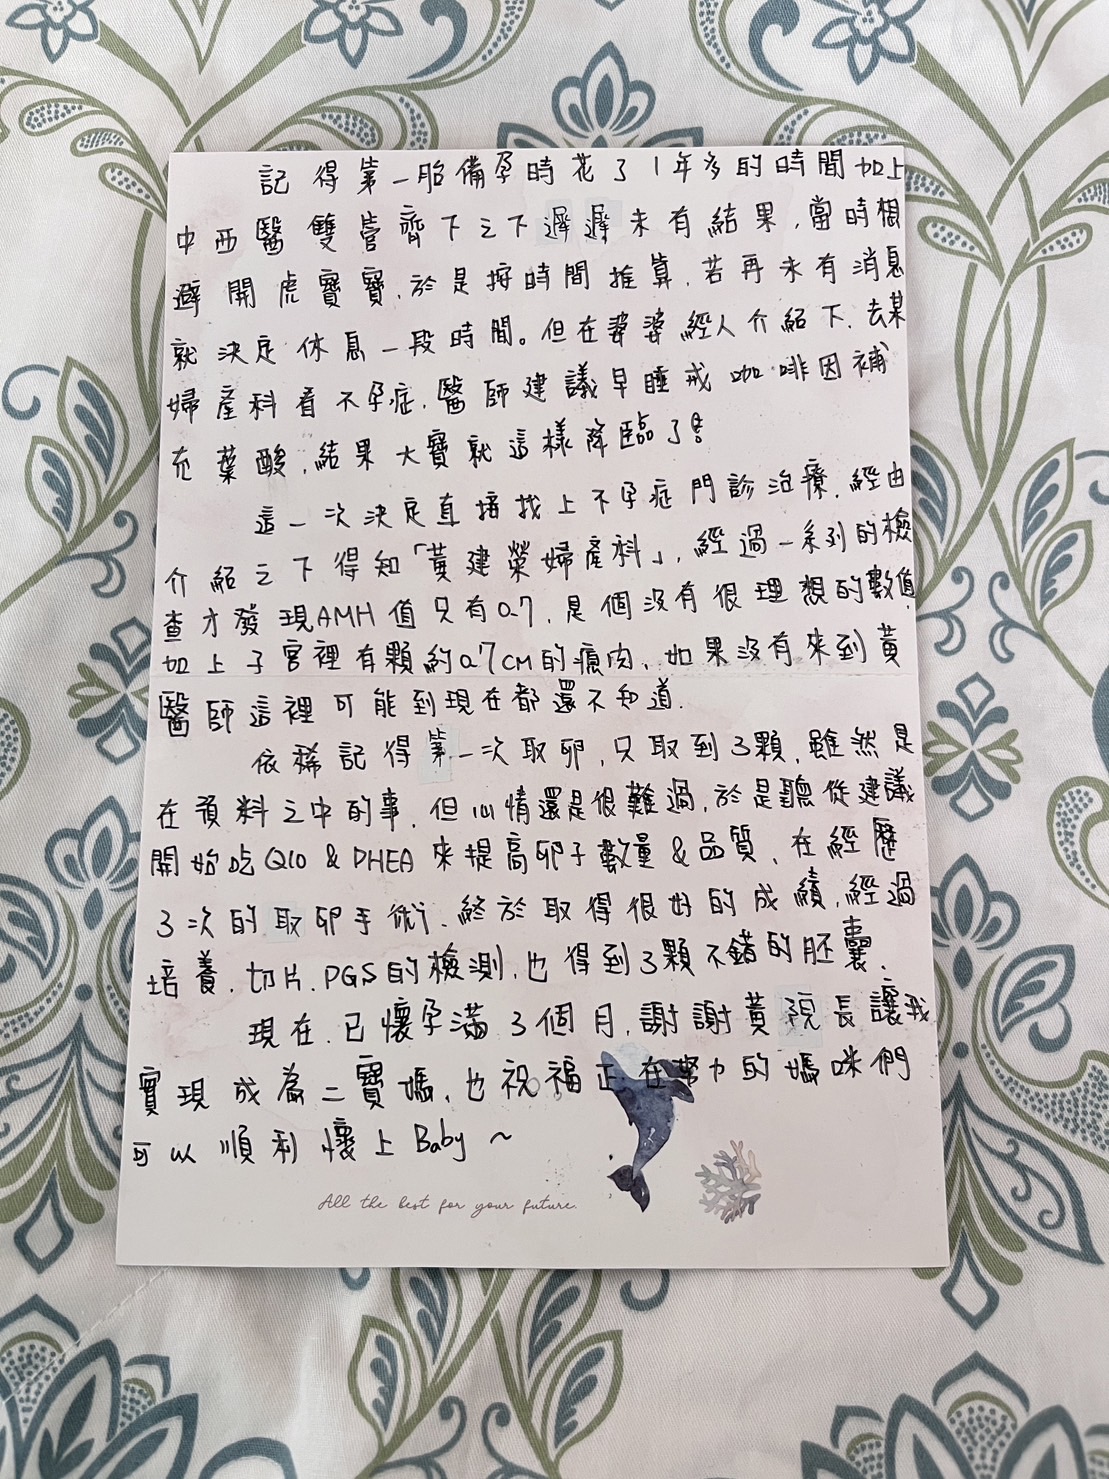 記得第一胎備孕時花了1年多的時間加上
中西醫雙管齊下之下遲遲未有結果,當時想
避開虎寶寶,於是按時間推算,若再未有消息
就決定休息一段時間。但在婆婆經人介紹下,去某
婦產科看不孕症,醫師建議早睡戒咖啡因補
充葉酸,結果大寶就這樣降臨了!
這一次決定直接找上不孕症門診治療,經由
介紹之下得知「黃建榮婦產科」,經過一系列的檢
查才發現AMH值只有0.7,是個沒有很理想的數值,
加上子宮裡有顆約0.7CM的瘜肉,如果沒有來到黃
醫師這裡可能到現在都還不知道.
依稀記得第一次取卵,只取到3顆,雖然是
在預料之中的事,但心情還是很難過,於是聽從建議
開始吃Q10 & DHEA 來提高卵子數量&品質,在經歷
3次的取卵手術,終於取得很好的成績,經過
培養,切片,PGS的檢測,也得到3顆不錯的胚囊.
現在,已懷孕滿3個月,謝謝黃院長讓我
實現成為二寶媽,也祝福正在努力的媽咪們
可以順利懷上Baby~
All the best for your future.